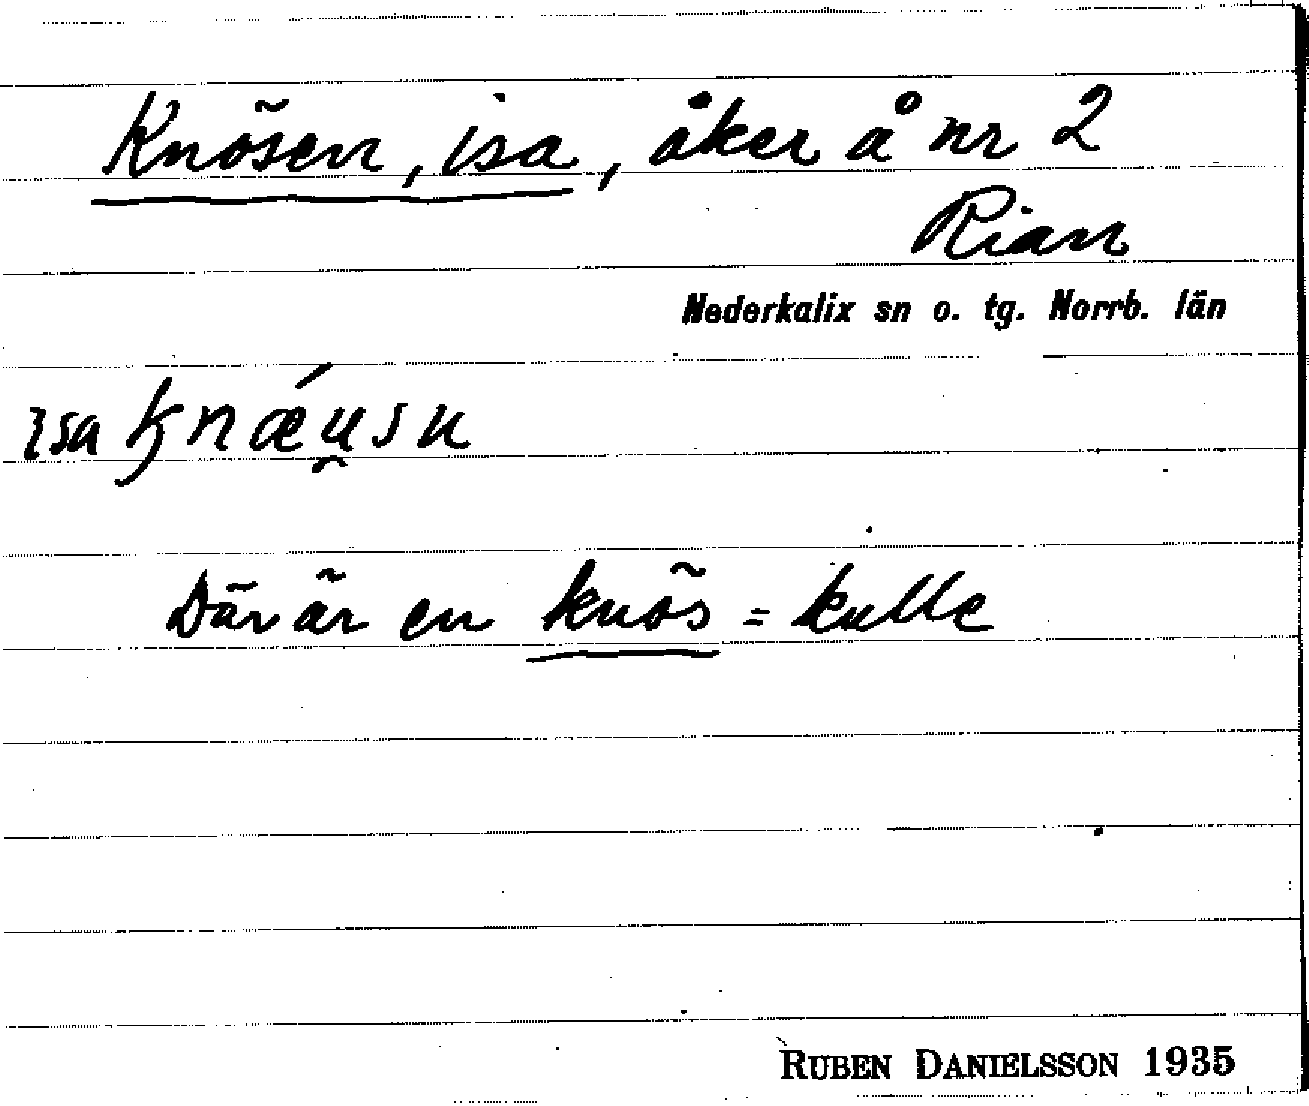 Knösen, isa, åker å nr 2
Rian
Nederkalix sn o. tg. Norrb. län
ɩsa ꞣnǽu̯sn
Där är en knös = kulle
RUBEN DANIELSSON 1935